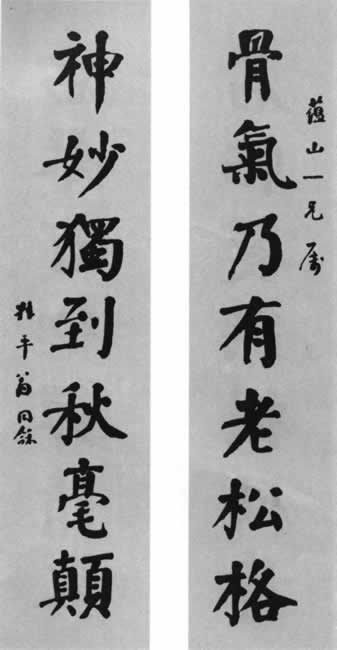 骨氣乃有老松格
蘊山一兄屬
神妙獨到秋毫顛
叔平翁同龢